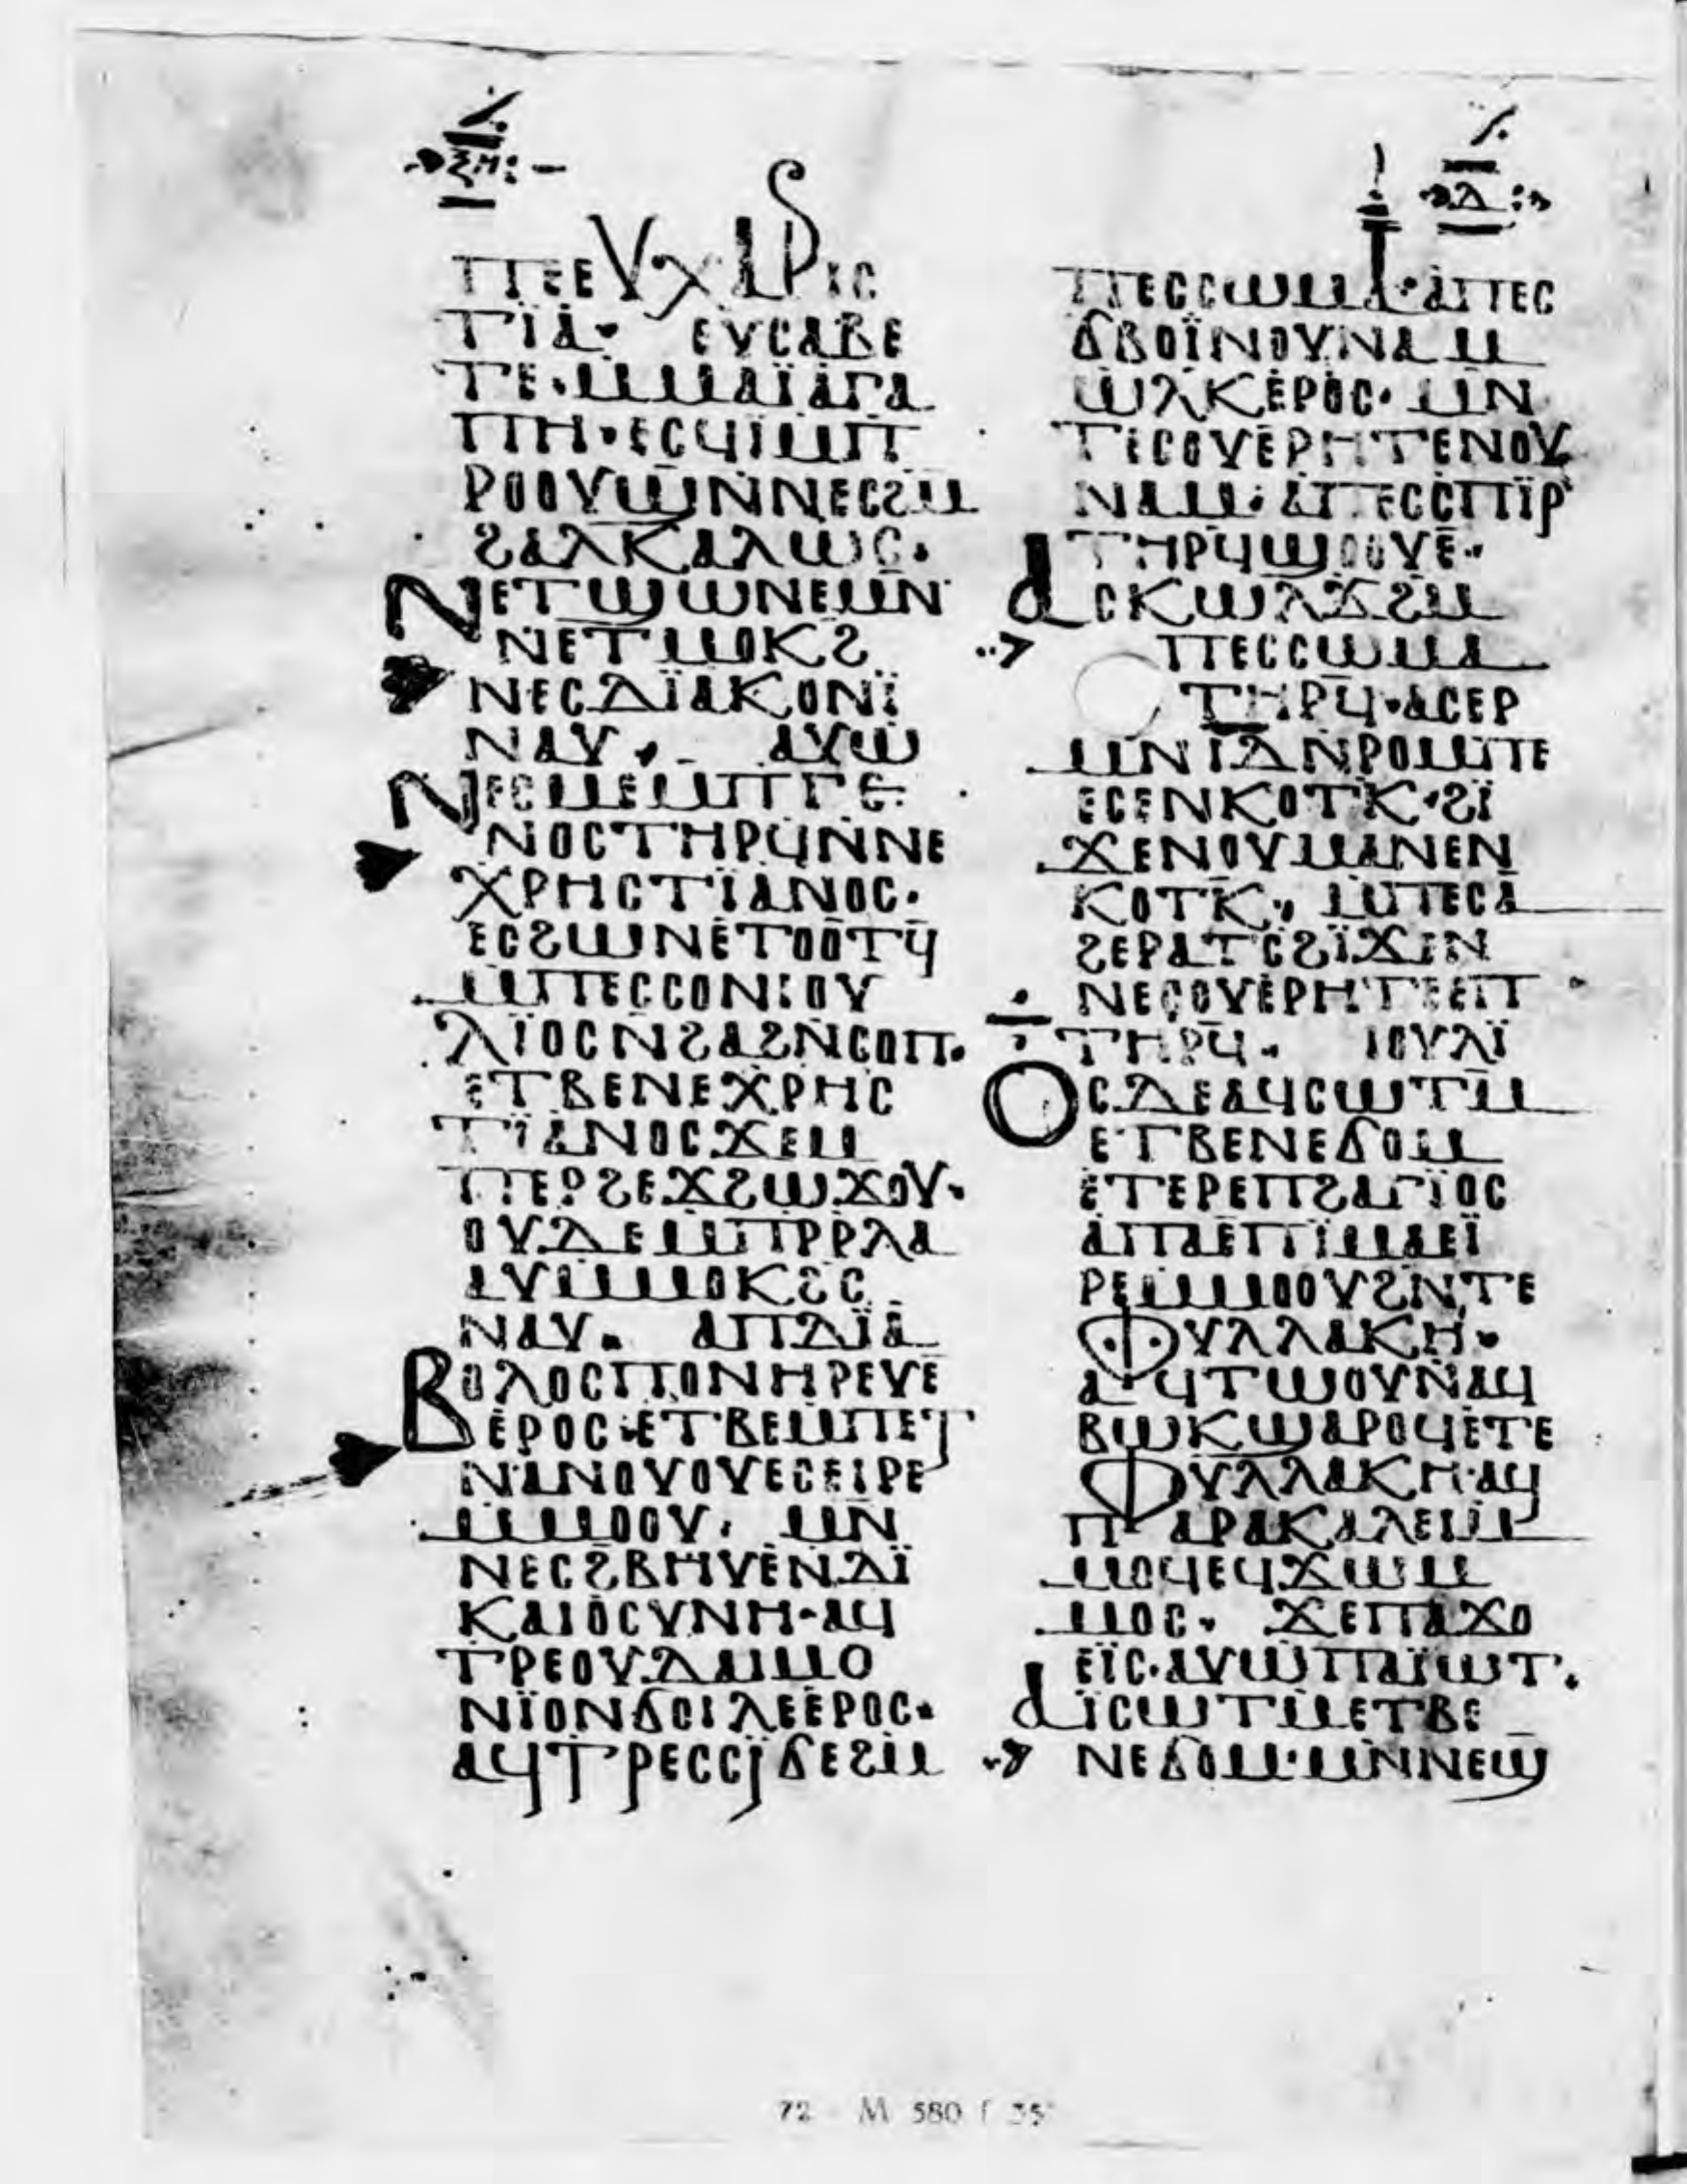 ϩⲏ
ⲡⲉⲉⲩⲭⲁⲣⲓⲥ
ⲧⲓ̈ⲁ· ⲉⲩⲥⲁⲃⲉ
ⲧⲉ·ⲙⲙⲁⲓ̈ⲁⲅⲁ
ⲡⲏ·ⲉⲥϥⲓ̈ⲙⲡ
ⲣⲟⲟⲩϣⲛ̄ⲛⲉⲥϩⲙ
ϩⲁⲗⲕⲁⲗⲱⲥ·
ⲛⲉⲧϣⲱⲛⲉⲙⲛ
ⲛⲉⲧⲙⲟⲕϩ
ⲛⲉⲥⲇⲓ̈ⲁⲕⲟⲛⲓ̈
ⲛⲁⲩ· ⲁⲩⲱ
ⲛⲉⲥⲙⲉⲙⲡⲅⲉ
ⲛⲟⲥⲧⲏⲣϥⲛ̄ⲛⲉ
ⲭⲣⲏⲥⲧⲓ̈ⲁⲛⲟⲥ·
ⲉⲥϩⲱⲛⲉⲧⲟⲟⲧϥ
ⲙⲡⲉⲥⲥⲟⲛⲓⲟⲩ
ⲗⲓ̈ⲟⲥⲛ̄ϩⲁϩⲛ̄ⲥⲟⲡ·
ⲉⲧⲃⲉⲛⲉⲭⲣⲏⲥ
ⲧⲓ̈ⲁⲛⲟⲥϫⲉⲙ
ⲡⲉⲣϩⲉϫϩⲱϫⲟⲩ·
ⲟⲩⲇⲉⲙⲡⲣ̄ⲣ̄ⲗⲁ
ⲁⲩⲓⲙⲙⲟⲕϩⲥ
ⲛⲁⲩ· ⲁⲡⲇⲓ̈ⲁ
ⲃⲟⲗⲟⲥⲡⲟⲛⲏⲣⲉⲩⲉ
ⲉⲣⲟⲥ·ⲉⲧⲃⲉⲙⲡⲉⲧ
ⲛⲁⲛⲟⲩⲟⲩⲉⲥⲉⲓⲣⲉ
ⲙⲙⲟⲟⲩ· ⲙⲛ
ⲛⲉⲥϩⲃⲏⲩⲉⲛⲇⲓ̈
ⲕⲁⲓⲟⲥⲩⲛⲏ·ⲁϥ
ⲧⲣⲉⲟⲩⲇⲁⲓⲙⲟ
ⲛⲓ̈ⲟⲛϭⲟⲓⲗⲉⲉⲣⲟⲥ·
ⲁϥⲧⲣⲉⲥⲥⲓ̈ϭⲉϩⲙ
ⲗ
ⲡⲉⲥⲥⲱⲙⲁ·ⲁⲡⲉⲥ
ϭⲃⲟⲓ̈ⲛⲟⲩⲛⲁⲙ
ⲱⲗⲕⲉⲣⲟⲥ· ⲙⲛ
ⲧⲉⲥⲟⲩⲉⲣⲏⲧⲉⲛⲟⲩ
ⲛⲁⲙ·ⲁⲡⲉⲥⲥⲡⲓ̈ⲣ
ⲧⲏⲣϥϣⲟⲟⲩⲉ·
ⲁⲥⲕⲱⲗϫϩⲙ
ⲡⲉⲥⲥⲱⲙⲁ
ⲧⲏⲣϥ·ⲁⲥⲉⲣ
ⲙⲛⲧⲁⲛⲣⲟⲙⲡⲉ
ⲉⲥⲉⲛⲕⲟⲧⲕ·ϩⲓ̈
ϫⲉⲛⲟⲩⲙⲁⲛⲉⲛ
ⲕⲟⲧⲕ· ⲙⲡⲉⲥⲁ
ϩⲉⲣⲁⲧⲥϩⲓ̈ϫⲓⲛ
ⲛⲉⲥⲟⲩⲉⲣⲏⲧⲉⲉⲡ
ⲧⲏⲣϥ· ⲓⲟⲩⲗⲓ̈
ⲟⲥⲇⲉⲁϥⲥⲱⲧⲙ
ⲉⲧⲃⲉⲛⲉϭⲟⲙ
ⲉⲧⲉⲣⲉⲡϩⲁⲅⲓ̈ⲟⲥ
ⲁⲡⲁⲉⲡⲓ̈ⲙⲁⲉⲓ̈
ⲣⲉⲙⲙⲟⲟⲩϩⲛ̄ⲧⲉ
ⲫⲩⲗⲗⲁⲕⲏ·
ⲁϥⲧⲱⲟⲩⲛⲁϥ
ⲃⲱⲕϣⲁⲣⲟϥⲉⲧⲉ
ⲫⲩⲗⲗⲁⲕⲏ·ⲁϥ
ⲡⲁⲣⲁⲕⲁⲗⲉⲓⲙ
ⲙⲟϥⲉϥϫⲱⲙ
ⲙⲟⲥ· ϫⲉⲡⲁϫⲟ
ⲉⲓ̈ⲥ·ⲁⲩⲱⲡⲁⲓ̈ⲱⲧ·
ⲁⲓ̈ⲥⲱⲧⲙⲉⲧⲃⲉ
ⲛⲉϭⲟⲙ·ⲙⲛ̄ⲛⲉϣ
72 M 580 f